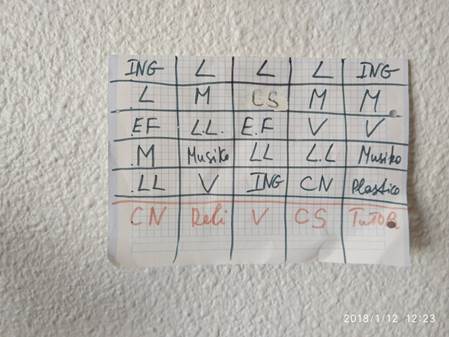 ING L L L ING
L M CS M M
EF L.L. E.F V V
M Musika LL L.L Musika
.LL V ING CN Plastica
CN Reli V CS TUTOR
2018/1/12 12:23